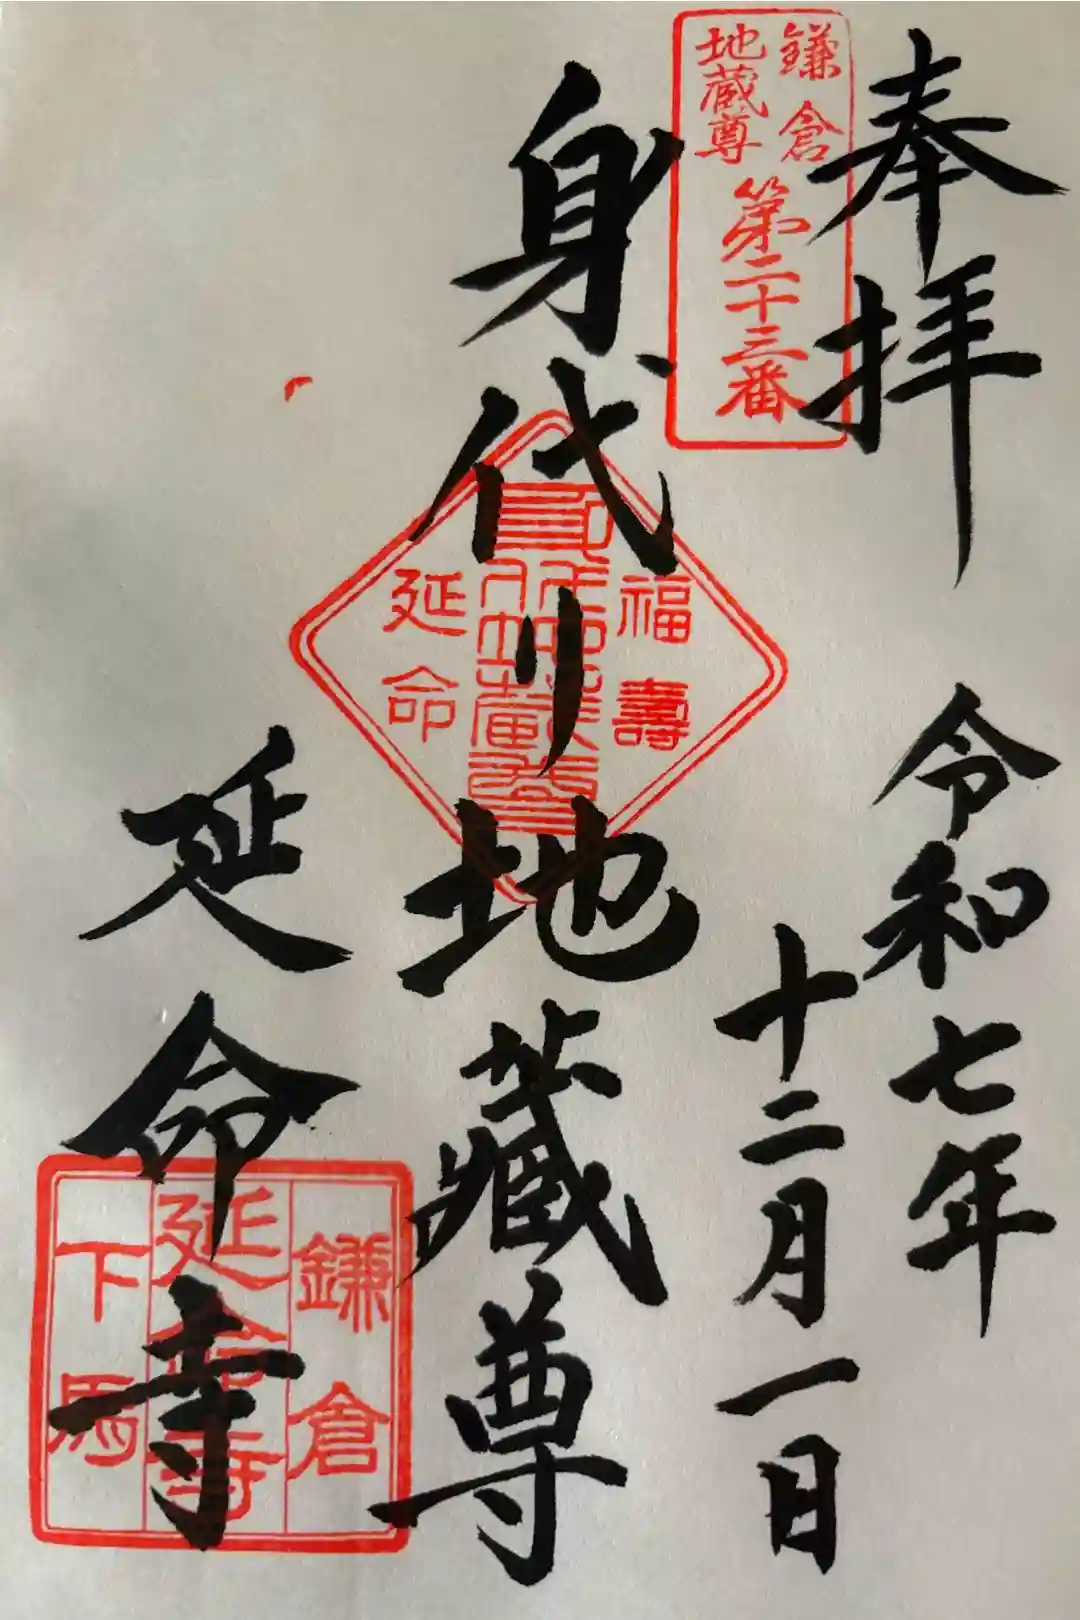 奉拝
鎌倉
地蔵尊
第二十三番
令和七年
十二月一日
身代り地蔵尊
福壽
身代地蔵尊
延命
延命寺
鎌倉
延命寺
下馬